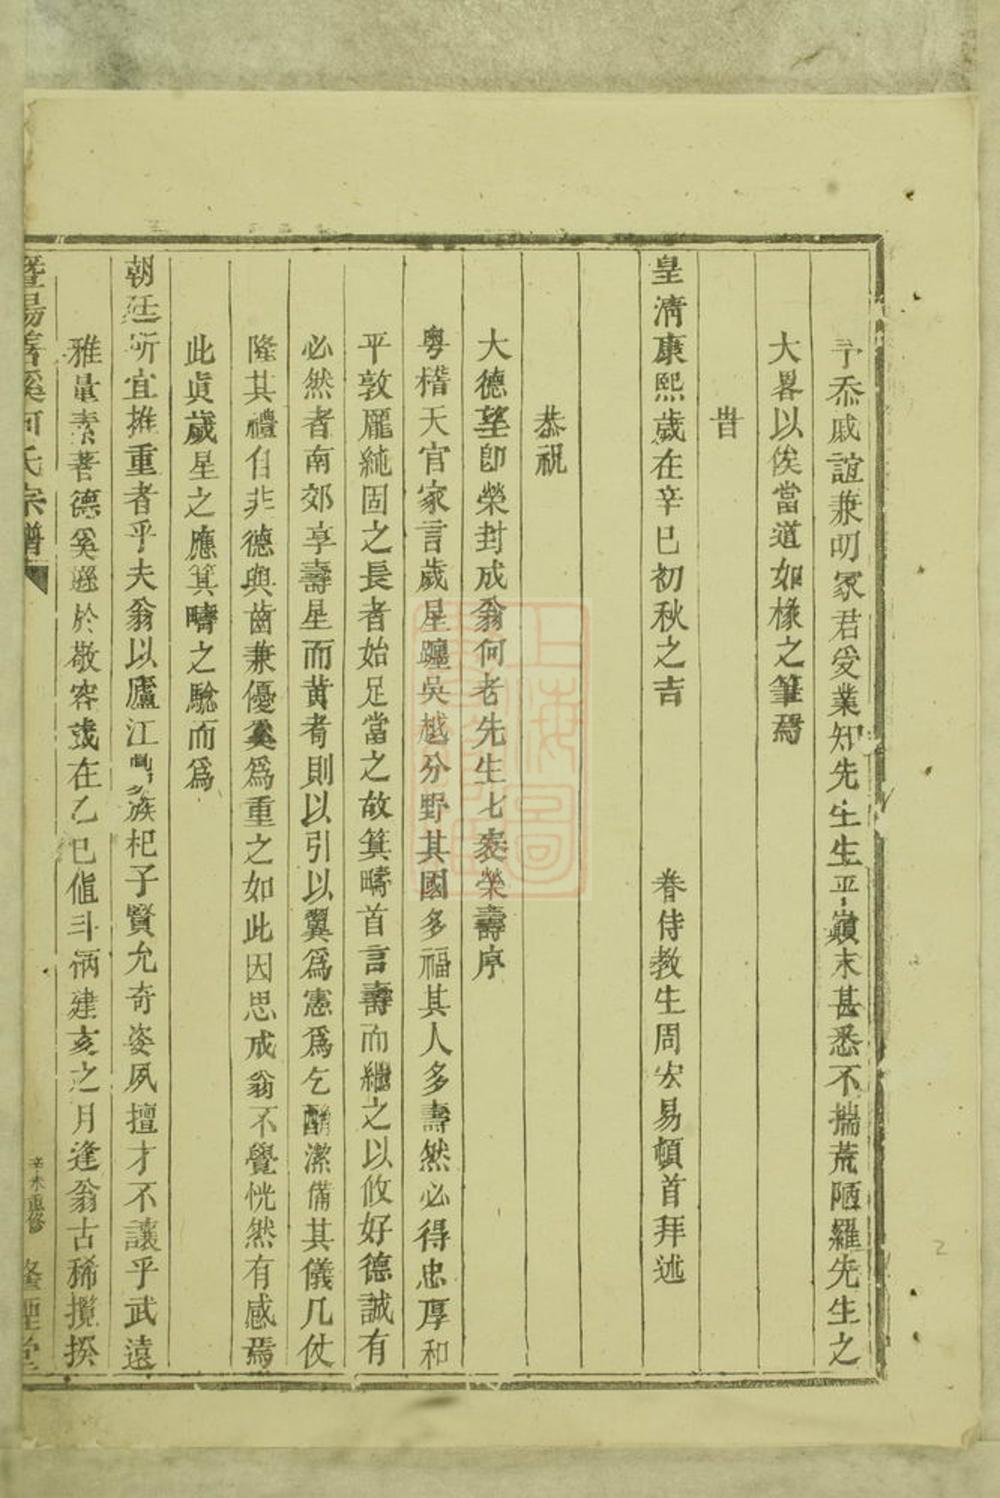 予忝戚誼兼叨冢君受業知先生生平巔末甚悉不揣荒陋羅先生之
大畧以俟當道如椽之筆焉
旹
皇清康熙歲在辛巳初秋之吉 眷侍教生周宏易頓首拜述
恭祝
大德望卽榮封成翁何老先生七袠榮壽序
粵稽天官家言歲星躔吳越分野其國多福其人多壽然必得忠厚和
平敦龐純固之長者始足當之故箕疇首言壽而繼之以攸好德誠有
必然者南郊享壽星而黃耇則以引以翼爲憲爲乞酳潔備其儀几仗
隆其禮自非德與齒兼優奚爲重之如此因思成翁不覺恍然有感焉
此眞歲星之應箕疇之驗而爲
朝廷所宜推重者乎夫翁以廬江族杞子賢允奇姿夙擅才不讓乎武遠
雅量素著德奚遜於敬容彧在乙巳値斗柄建亥之月逢翁古稀攬揆
暨陽善溪何氏宗譜
辛未重修